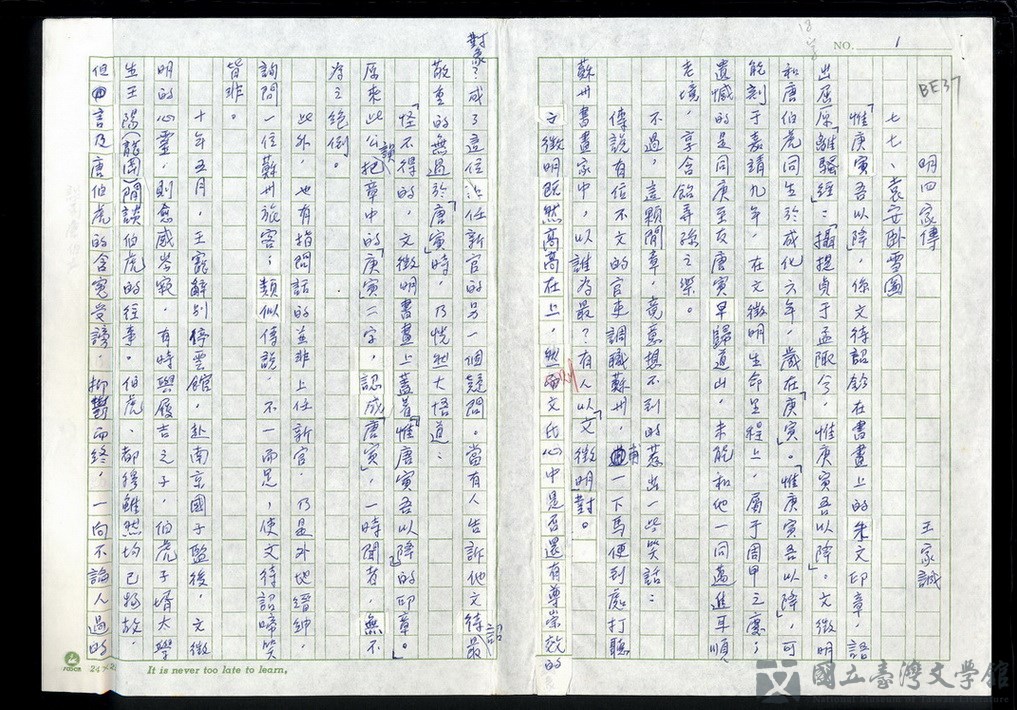 NO. 1
BE37
明四家傳 王家誠
七七、袁安臥雪圖
「惟庚寅吾以降」係文待詔鈐在書畫上的朱文印章,語
出屈原「離騷經」:「攝提貞于孟陬兮,惟庚寅吾以降」。文徵明
和唐伯虎同生於成化六年,歲在「庚寅」。「惟庚寅吾以降」,可
能刻于嘉靖九年,在文徵明生命旅程上,屬于周甲之慶;
遺憾的是同庚至友唐寅早歸道山,未能和他一同邁進耳順
老境,享含飴弄孫之樂。
不過,這顆閒章,竟意想不到的惹出一些笑話:
傳說有位不文的官吏調職蘇州,甫一下馬便到處打聽
蘇州書畫家中,以誰為最?有人以「文徵明」對。
文徵明既然高高在上,然則文氏心中是否還有尊崇效的
對象?成了這位涖任新官的另一個疑問。當有人告訴他文待詔最
敬重的無過於「唐寅」時,乃恍然大悟道:
「怪不得的,文徵明書畫上蓋著『惟唐寅吾以降』的印章。」
原來此公誤把章中的「庚寅」二字,認成「唐寅」,一時聞者,無不
為之絕倒。
此外,也有指問話的並非上任新官,乃是外地縉紳,
詢問一位蘇州旅客;類似傳說,不一而足,使文待詔啼笑
皆非。
十年五月,王寵辭別停雲館,赴南京國子監後,文徵
明的心靈,則愈感岑寂,有時與履吉之子,伯虎子壻大學
生王陽(龍岡)閒談伯虎的往事。伯虎、都穆雖然均已物故,
但言及唐伯虎的含冤受謗,抑鬱而終,一向不論人過的
24×25
It is never too late to learn.
國立臺灣文學館
National Museum of Taiwan Literature